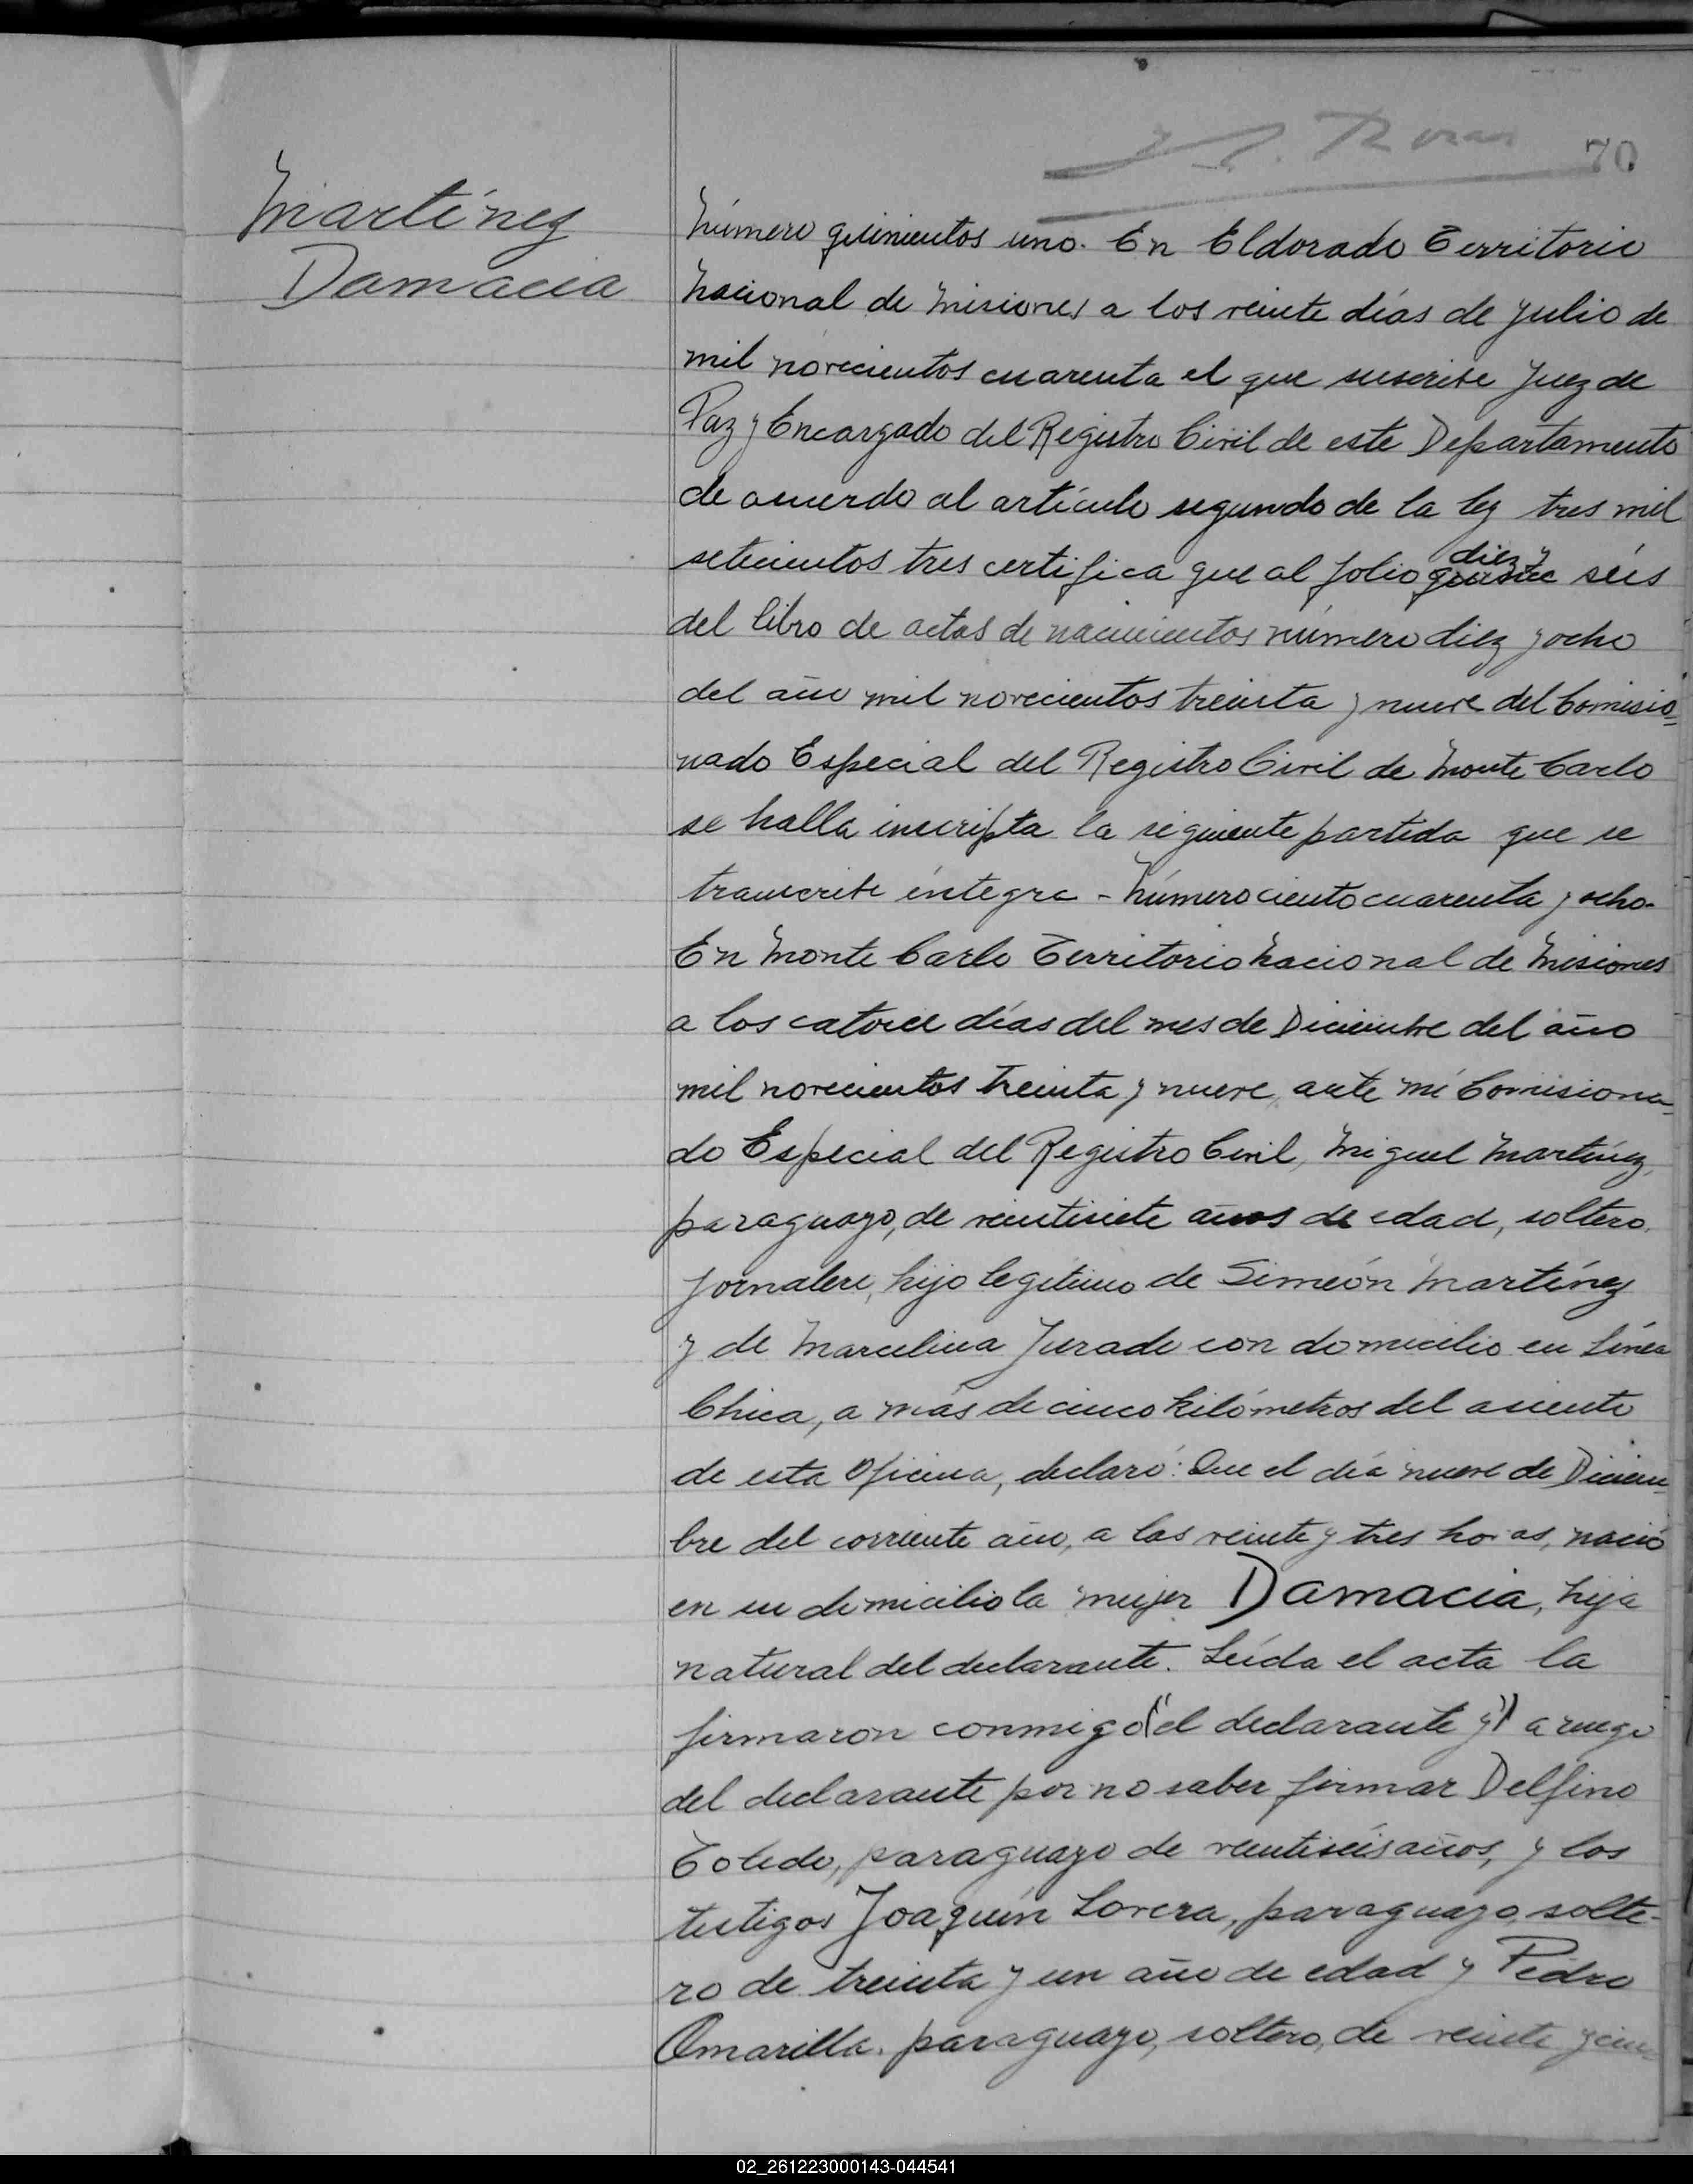 70
Martínez
Damacia
Número quinientos uno. En Eldorado Territorio
Nacional de Misiones a los veinte días de Julio de
mil novecientos cuarenta el que suscribe Juez de
Paz y Encargado del Registro Civil de este Departamento
de acuerdo al artículo segundo de la ley tres mil
setecientos tres certifica que al folio diez y seis
del libro de actas de nacimientos número diez y ocho
del año mil novecientos treinta y nueve del Comisio=
nado Especial del Registro Civil de Monte Carlo
se halla inscripta la siguiente partida que se
transcribe íntegra - Número ciento cuarenta y ocho.
En Monte Carlo Territorio Nacional de Misiones
a los catorce días del mes de Diciembre del año
mil novecientos treinta y nueve, ante mí Comisiona=
do Especial del Registro Civil, Miguel Martínez,
paraguayo, de veintisiete años de edad, soltero,
jornalero, hijo legítimo de Simeón Martínez
y de Marcelina Jurado con domicilio en Línea
Chica, a más de cinco kilómetros del asiento
de esta Oficina, declaró: Que el día nueve de Diciem=
bre del corriente año, a las veinte y tres horas, nació
en su domicilio la mujer Damacia, hija
natural del declarante. Leída el acta la
firmaron conmigo ("el declarante y") a ruego
del declarante por no saber firmar Delfino
Toledo, paraguayo de veintiseis años, y los
testigos Joaquín Lovera, paraguayo, solte-
ro de treinta y un año de edad y Pedro
Amarilla, paraguayo, soltero, de veinte y cin=
02_261223000143-044541